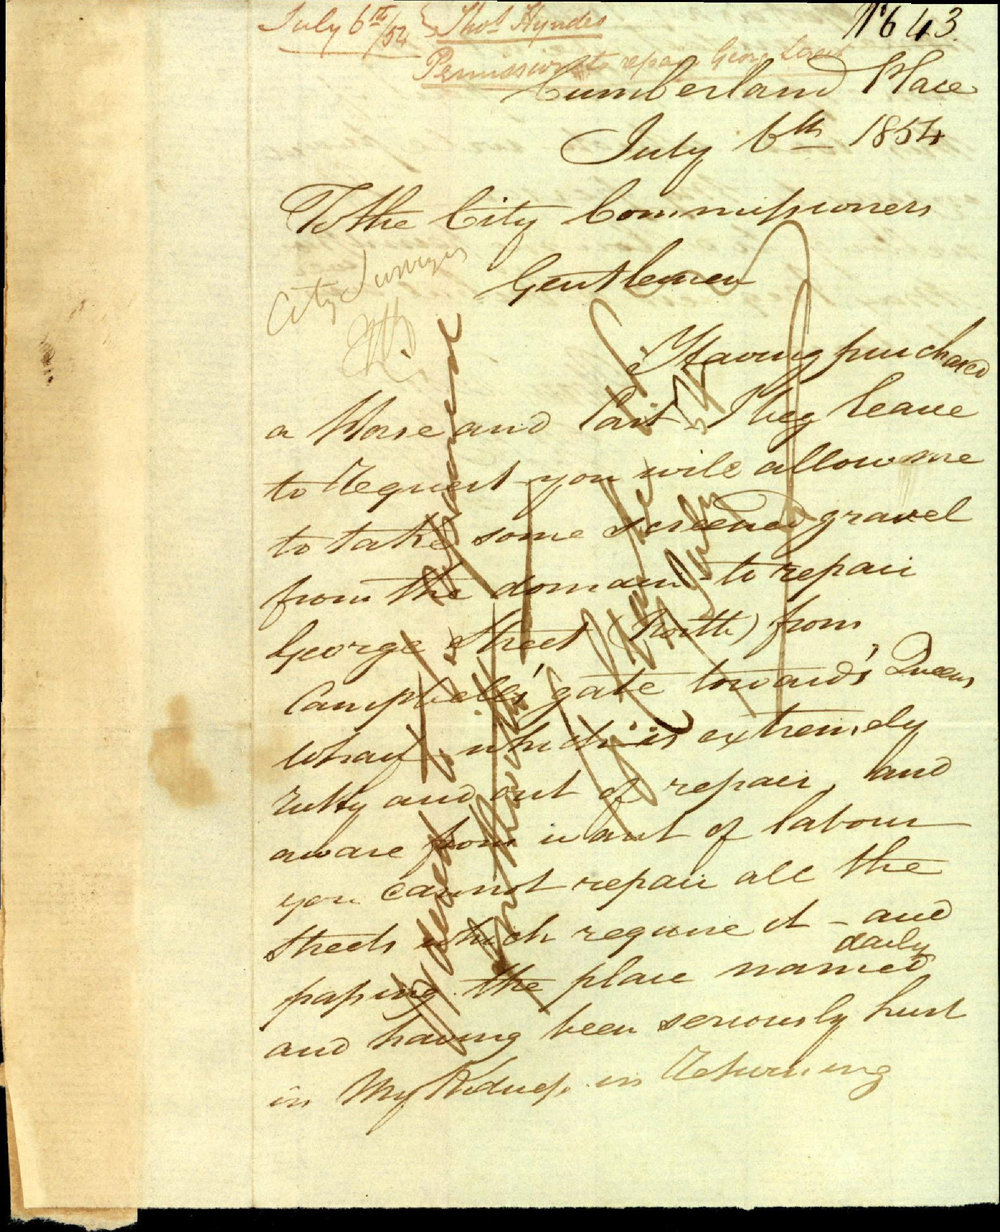 July 6th/54 Thos Hyndes
No 643
Permission to repair George Street
Cumberland Place
July 6th 1854
To the City Commissioners
Gentlemen
City Surveyor
Having purchased
a Horse and Cart I beg leave
to Request you will allow me
to take some screened gravel
from the domain to repair
George Street (North) from
Campbells' gate towards Queens
Wharf which is extremely
rutty and out of repair, and
aware from want of labour
you cannot repair all the
Streets which require it – and
daily
passing the place named
and having been seriously hurt
in My Kidneys in Returning